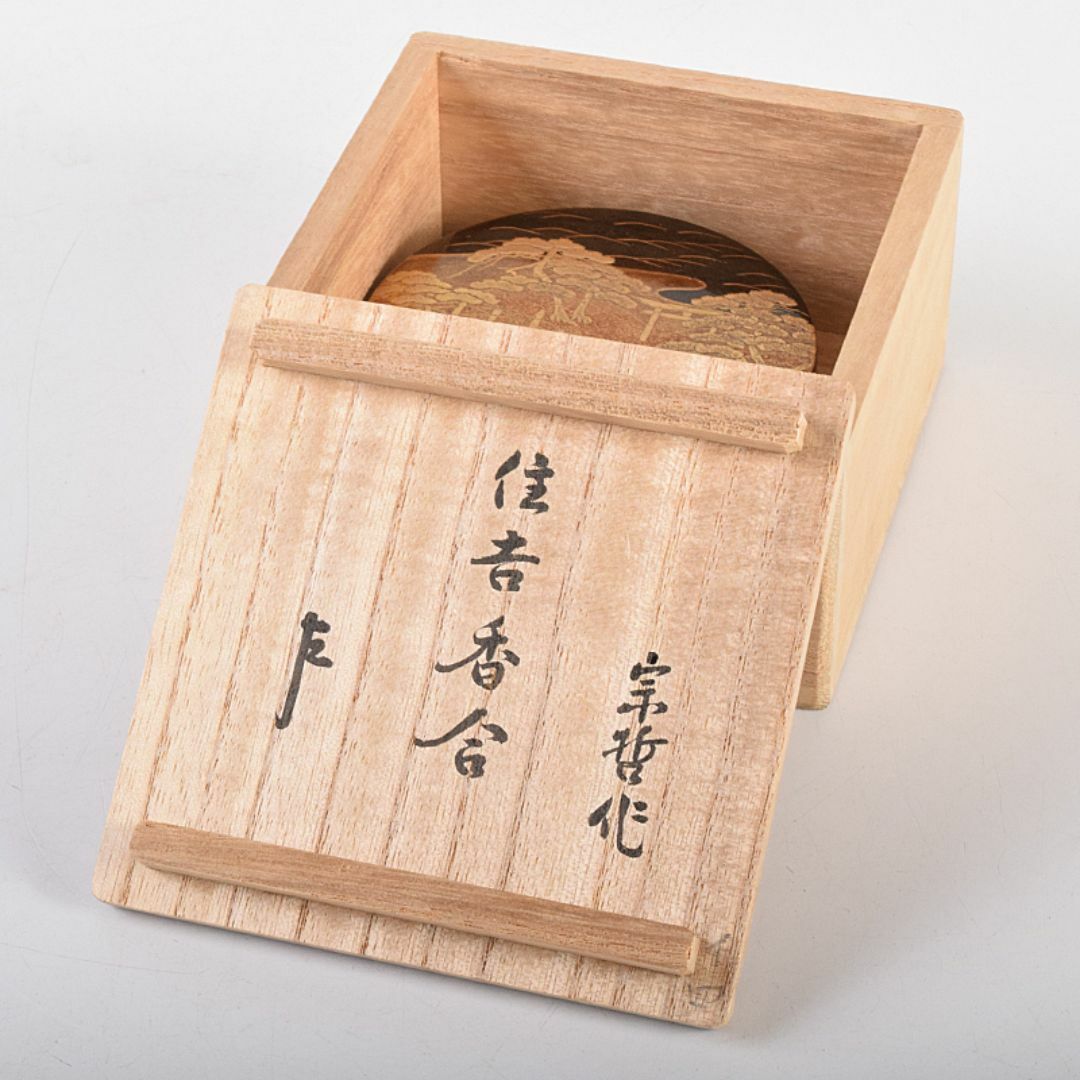 宗哲作
住吉香合
左